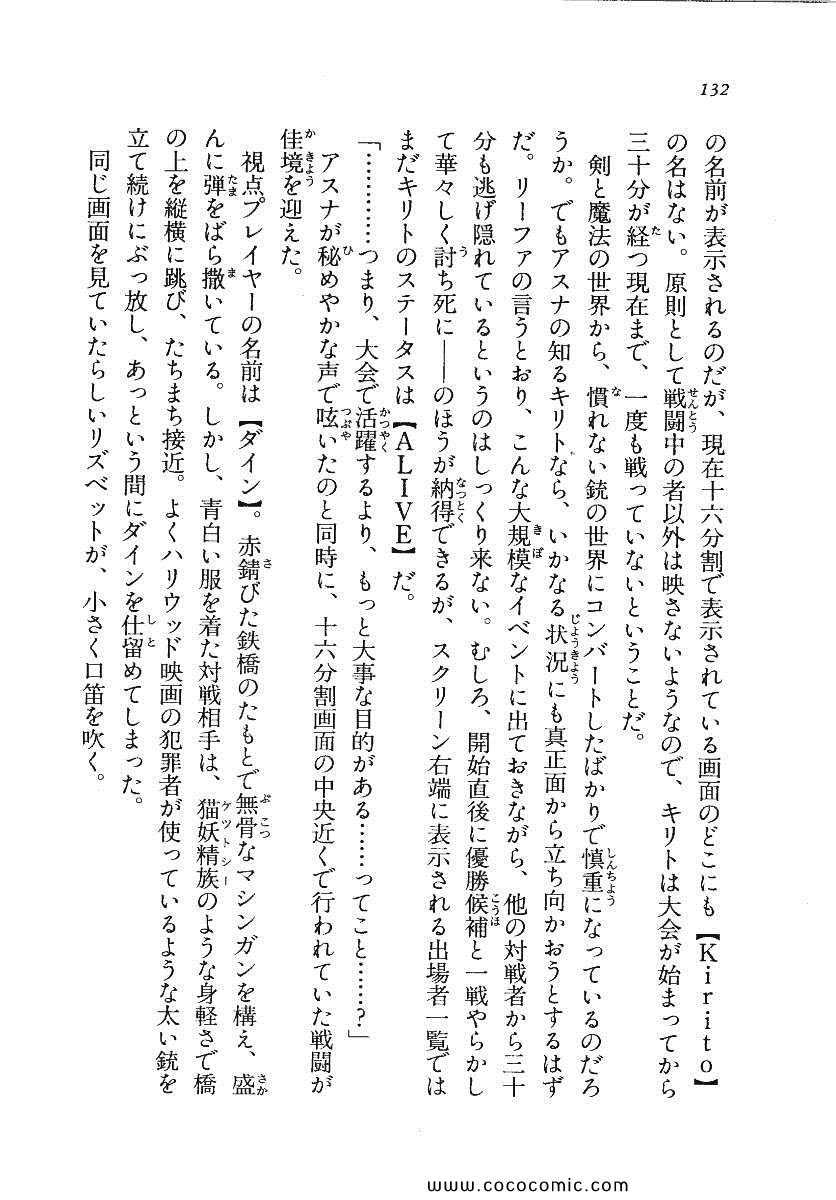 132
の名前が表示されるのだが、現在十六分割で表示されている画面のどこにも【Kirito】
の名はない。原則として戦闘中の者以外は映さないようなので、キリトは大会が始まってから
三十分が経つ現在まで、一度も戦っていないということだ。
剣と魔法の世界から、慣れない銃の世界にコンバートしたばかりで慎重になっているのだろ
うか。でもアスナの知るキリトなら、いかなる状況にも真正面から立ち向かおうとするはず
だ。リーファの言うとおり、こんな大規模なイベントに出ておきながら、他の対戦者から三十
分も逃げ隠れているというのはしっくり来ない。むしろ、開始直後に優勝候補と一戦やらかし
て華々しく討ち死に――のほうが納得できるが、スクリーン右端に表示される出場者一覧では
まだキリトのステータスは【ALIVE】だ。
「…………つまり、大会で活躍するより、もっと大事な目的がある……ってこと……?」
アスナが秘めやかな声で呟いたのと同時に、十六分割画面の中央近くで行われていた戦闘が
佳境を迎えた。
視点プレイヤーの名前は【ダイン】。赤錆びた鉄橋のたもとで無骨なマシンガンを構え、盛
んに弾をばら撒いている。しかし、青白い服を着た対戦相手は、猫妖精族のような身軽さで橋
の上を縦横に跳び、たちまち接近。よくハリウッド映画の犯罪者が使っているような太い銃を
立て続けにぶっ放し、あっという間にダインを仕留めてしまった。
同じ画面を見ていたらしいリズベットが、小さく口笛を吹く。
www.cococomic.com